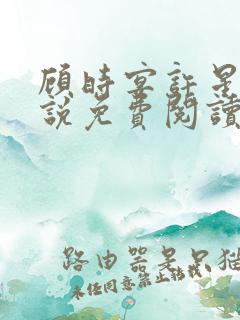 顾时宴許星
說免費閱讀
路由器是只猫
未经同意禁止转载